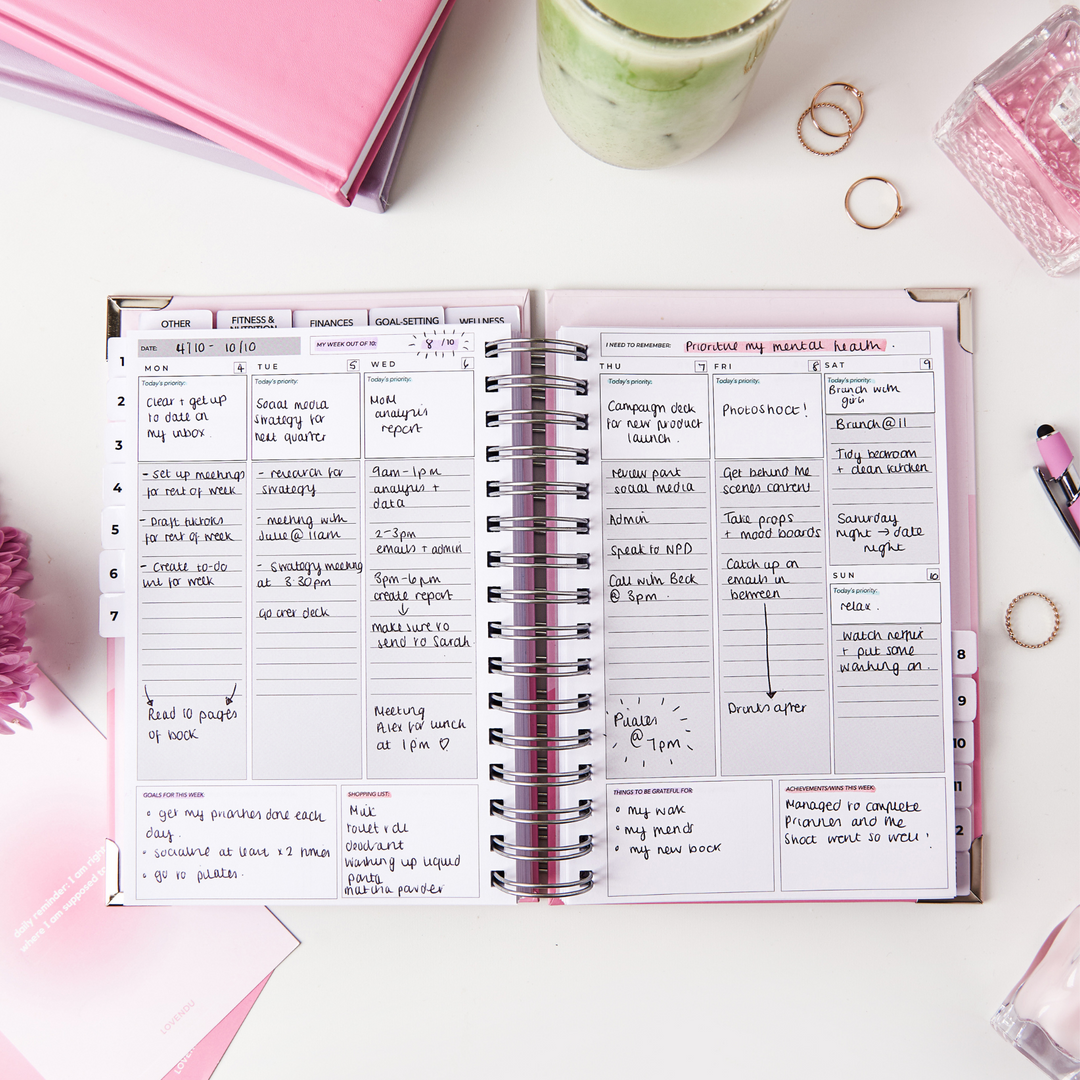 OTHER
FITNESS &
NUTRITION
FINANCES
GOAL-SETTING
WELLNESS
1
2
3
4
5
6
7
DATE: 4/10 - 10/10
MY WEEK OUT OF 10: 8 /10
MON 4
Today's priority:
Clear + get up
to date on
my inbox.
- Set up meetings
for rest of week
- Draft tiktoks
for rest of week
- Create to-do
list for week
Read 10 pages
of book
TUE 5
Today's priority:
Social media
strategy for
next quarter
- research for
strategy
- meeting with
Julie @ 11am
- Strategy meeting
at 3:30pm
Go over deck
WED 6
Today's priority:
MoM
analysis
report
9am-1pm
analysis +
data
2-3pm
emails + admin
3pm-6pm
create report
make sure to
send to Sarah
Meeting
Alex for lunch
at 1pm ♡
GOALS FOR THIS WEEK:
• get my priorities done each
day.
• socialise at least x2 times
• go to pilates.
SHOPPING LIST:
Milk
toilet roll
deodrant
washing up liquid
pasta
matcha powder
I NEED TO REMEMBER: Prioritise my mental health.
THU 7
Today's priority:
Campaign deck
for new product
launch.
review past
social media
Admin
Speak to NPD
Call with Beck
@ 3pm.
Pilates
@ 7pm
FRI 8
Today's priority:
Photoshoot!
Get behind the
scenes content
Take props
+ mood boards
Catch up on
emails in
between
Drinks after
SAT 9
Today's priority:
Brunch with
girls
Brunch @ 11
Tidy bedroom
+ clean kitchen
Saturday
night → date
night
SUN 10
Today's priority:
relax.
Watch netflix
+ put some
washing on.
THINGS TO BE GRATEFUL FOR:
• my work
• my friends
• my new book
ACHIEVEMENTS/WINS THIS WEEK:
Managed to complete
Priorities and the
Shoot went so well!
8
9
10
11
2
daily reminder: I am right
where I am supposed to
LOVENDU
LOVEN